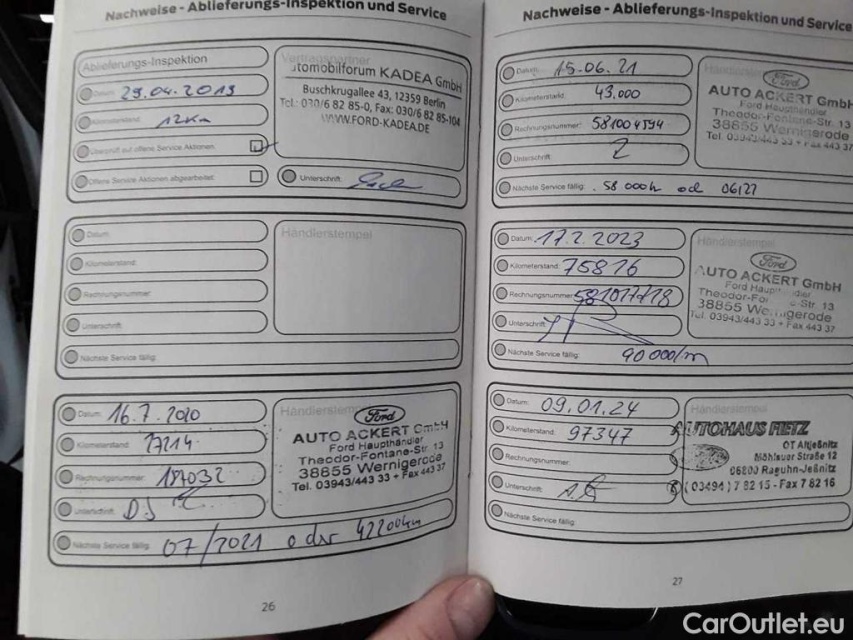 Nachweise - Ablieferungs-Inspektion und Service
Ablieferungs-Inspektion
Datum: 29.04.2019
Kilometerstand: 12Km
Überprüft auf offene Service Aktionen.
Offene Service Aktionen abgearbeitet.
Vertragspartner
utomobilforum KADEA GmbH
Buschkrugallee 43, 12359 Berlin
Tel.: 030/6 82 85-0, Fax: 030/6 82 85-104
WWW.FORD-KADEA.DE
Unterschrift:
Datum:
Kilometerstand:
Rechnungsnummer:
Unterschrift:
Nächste Service fällig:
Händlerstempel
Datum: 16.7.2020
Kilometerstand:
Rechnungsnummer: 187032
Unterschrift:
Nächste Service fällig: 07/2021 oder 42200km
Händlerstempel
Ford
AUTO ACKERT GmbH
Ford Haupthändler
Theodor-Fontane-Str. 13
38855 Wernigerode
Tel. 03943/443 33 + Fax 443 37
26
Nachweise - Ablieferungs-Inspektion und Service
Datum: 15.06.21
Kilometerstand: 43.000
Rechnungsnummer: 581004594
Unterschrift:
Nächste Service fällig: 58 000k od
Händlerstempel
Ford
AUTO ACKERT GmbH
Ford Haupthändler
Theodor-Fontane-Str. 13
38855 Wernigerode
Tel. 03943/443 33 + Fax 443 37
Datum: 17.2.2023
Kilometerstand: 75816
Rechnungsnummer: 581017718
Unterschrift:
Nächste Service fällig: 90000/m
Händlerstempel
Ford
AUTO ACKERT GmbH
Ford Haupthändler
Str. 13
38855 Wernigerode
Tel. 03943/443 33 + Fax 443 37
Datum: 09.01.24
Kilometerstand: 97347
Rechnungsnummer:
Unterschrift:
Nächste Service fällig:
Händlerstempel
AUTOHAUS
OT Altjeßnitz
Straße 12
06800 Raguhn-Jeßnitz
(03494) 7 82 15 - Fax 7 82 16
27
CarOutlet.eu